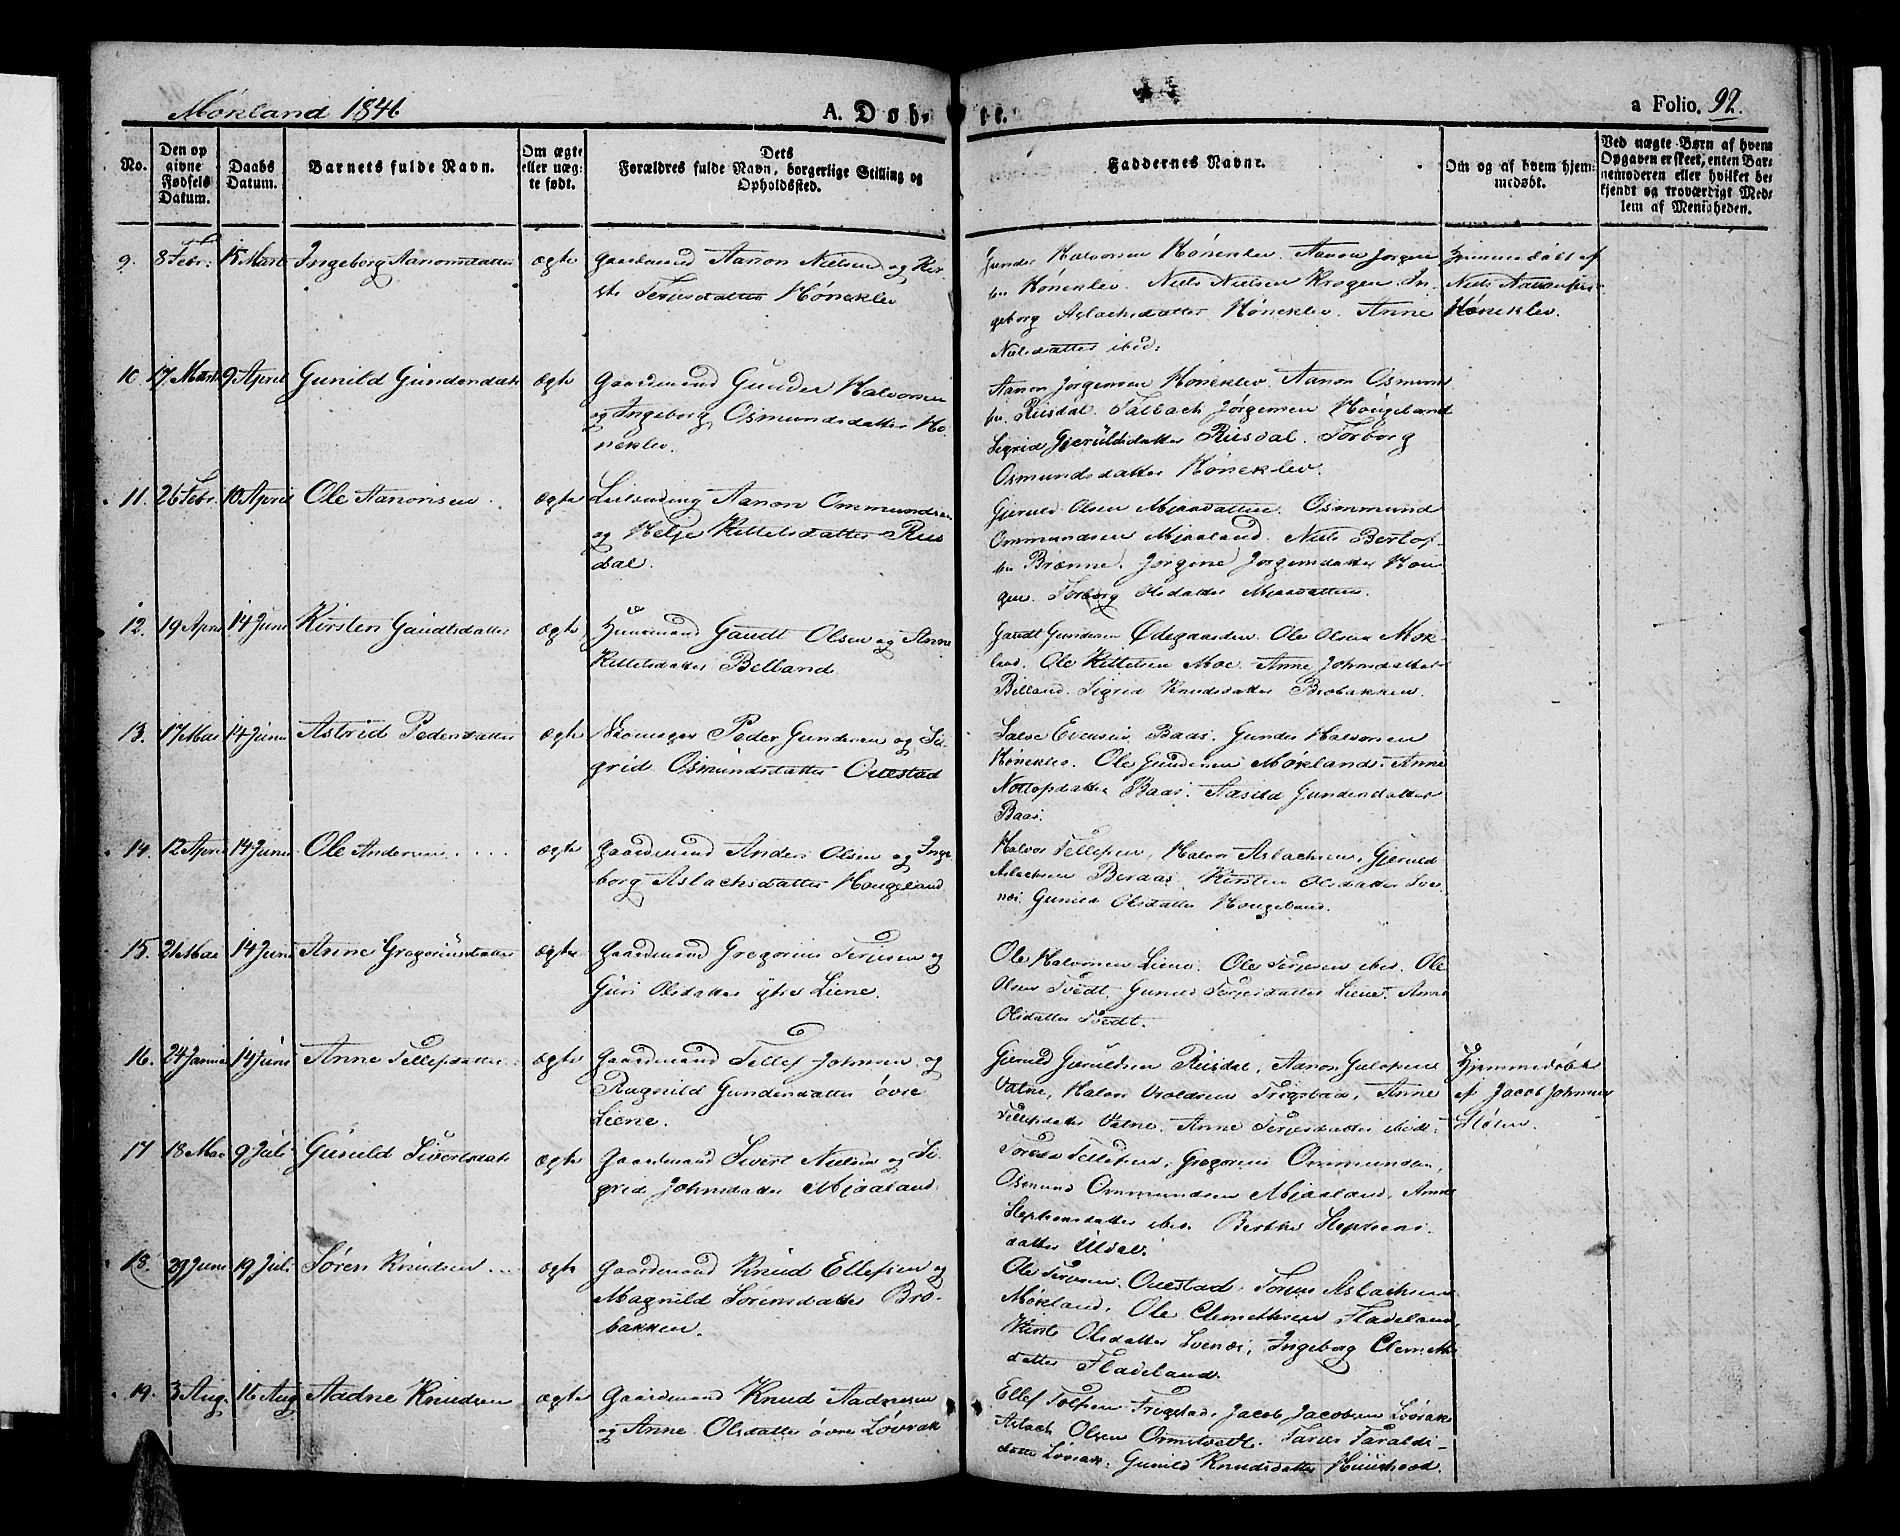 Mørland 1846
A. Døb- te.
a Folio. 92.
No.
Den op
givne
Fødsels
Datum.
Daabs
Datum.
Barnets fulde Navn.
Om ægte
eller uæg-
te født.
Dets
Forældres fulde Navn, borgerlige Stilling og
Opholdssted.
Faddernes Navne.
Om og af hvem hjem-
medøbt.
Ved uægte Børn af hvem
Opgaven er skeet, enten Bar-
nemoderen eller hvilket be-
kjendt og troværdigt Med-
lem af Menigheden.
9. 8 Febr. 15 Marts Ingeborg Aanonsdatter ægte Gaardmand Aanon Nielsen og Kir-
ste Terjesdatter Høneklev
Gunder Halvorsen Høneklev. Aanon Jørgen-
sen Høneklev. Niels Nielsen Krogen. In-
geborg Aslachsdatter Høneklev. Anne
Nielsdatter ibid.
Hjemmedøbt af
Niels Aanonsen
Høneklev.
10. 17 Marts 9 April Gunild Gundersdatr ægte Gaardmand Gunder Halvorsen
og Ingeborg Osmundsdatter Hø-
neklev.
Aanon Jørgensen Høneklev. Aanon Osmund
sen Riisdal. Jørgensen Hougeland
Sigrid Gjeruldsdatter Riisdal. Torborg
Osmundsdatter Høneklev.
11. 26 Febr. 10 April Ole Aanonsen ægte Leilænding Aanon Ommundsen
og Helje Kittelsdatter Riis
dal.
Gjeruld Olsen Mjaavatten. Osmund
Ommundsen Mjaaland. Niels Bertof-
sen Brænne. Jørgine Jørgensdatter Hou
gen. Torborg Olsdatter Mjaavatten.
12. 19 April 14 Juni Kirsten Gaudtsdatter ægte Huusmand Gaudt Olsen og Anne
Kittelsdatter Belland
Gaudt Gundersen Ødegaarden. Ole Olsen Mør-
land. Ole Kittelsen Moe. Anne Johnsdatter
Billand. Sigrid Knudsdatter Brobakken.
13. 17 Mai 14 Juni Astrid Pedersdatter ægte Peder Gundersen og Si-
grid Osmundsdatter Ouestad
Salve Baas. Gunder Halvorsen
Høneklev. Ole Gundersen Mørland. Anne
Baas. Aasild Gundersdatter
Baas.
14. 12 April 14 Juni Ole Andersen ægte Gaardmand Anders Olsen og Inge
borg Aslachsdatter Hougeland
Halvor Tellefsen, Halvor Aslachsen, Gjeruld
Aslachsen Beraas, Kirsten Olsdatter Sve
næs. Gunild Olsdatter Hougeland.
15. 21 Mai 14 Juni Anne Gregoriusdatter ægte Gaardmand Gregorius Terjesen og
Guri Olsdatter ytre Liene.
Ole Halvorsen Liene. Ole Terjesen ibid. Ole
Olsen Tvedt. Gunild Terjesdatter Liene. Anne
Olsdatter Tvedt.
16. 24 Januar 14 Juni Anne Tellefsdatter ægte Gaardmand Tellef Johnsen og
Ragnild Gundersdatter øvre
Liene.
Gjeruld Gjeruldsen Riisdal, Aanon
Vatne, Halvor Anne
Tellefsdatter Vatne. Anne Terjesdatter ibid.
Hjemmedøbt
af Jacob Johnsen
17 18 Mai 9 Juli Gunild Sivertsdatr ægte Gaardmand Sivert Nielsen og Si-
grid Johnsdatter Mjaaland.
Tellefsen, Gregorius Ommundsen,
Osmund Ommundsen Mjaaland, Anne
Stephensdatter ibid. Berthe Stephens-
datter Uldal.
18. 29 Juni 19 Juli Søren Knudsen ægte Gaardmand Knud Ellefsen og
Magnild Sørensdatter Bro-
bakken.
Ole Terjesen Ouestad, Aslachsen
Mørland, Ole Clemethsen Fladeland,
Kirste Olsdatter Svenæs, Ingeborg Clemeths
datter Fladeland.
19. 3 Aug. 16 Aug Aadne Knudsen ægte Gaardmand Knud Aadnesen
og Anne Olsdatter øvre Løvrak
Ellef Tolfsen Jacob Jacobsen Løvrak
Aslach Olsen Ormstvedt. Taralds-
datter Løvrak. Gunild Knudsdatter